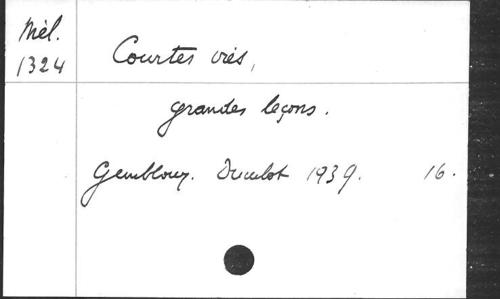 Mél.
1324
Courtes vies,
grandes leçons.
Gembloux. Duculot 1939. 16.